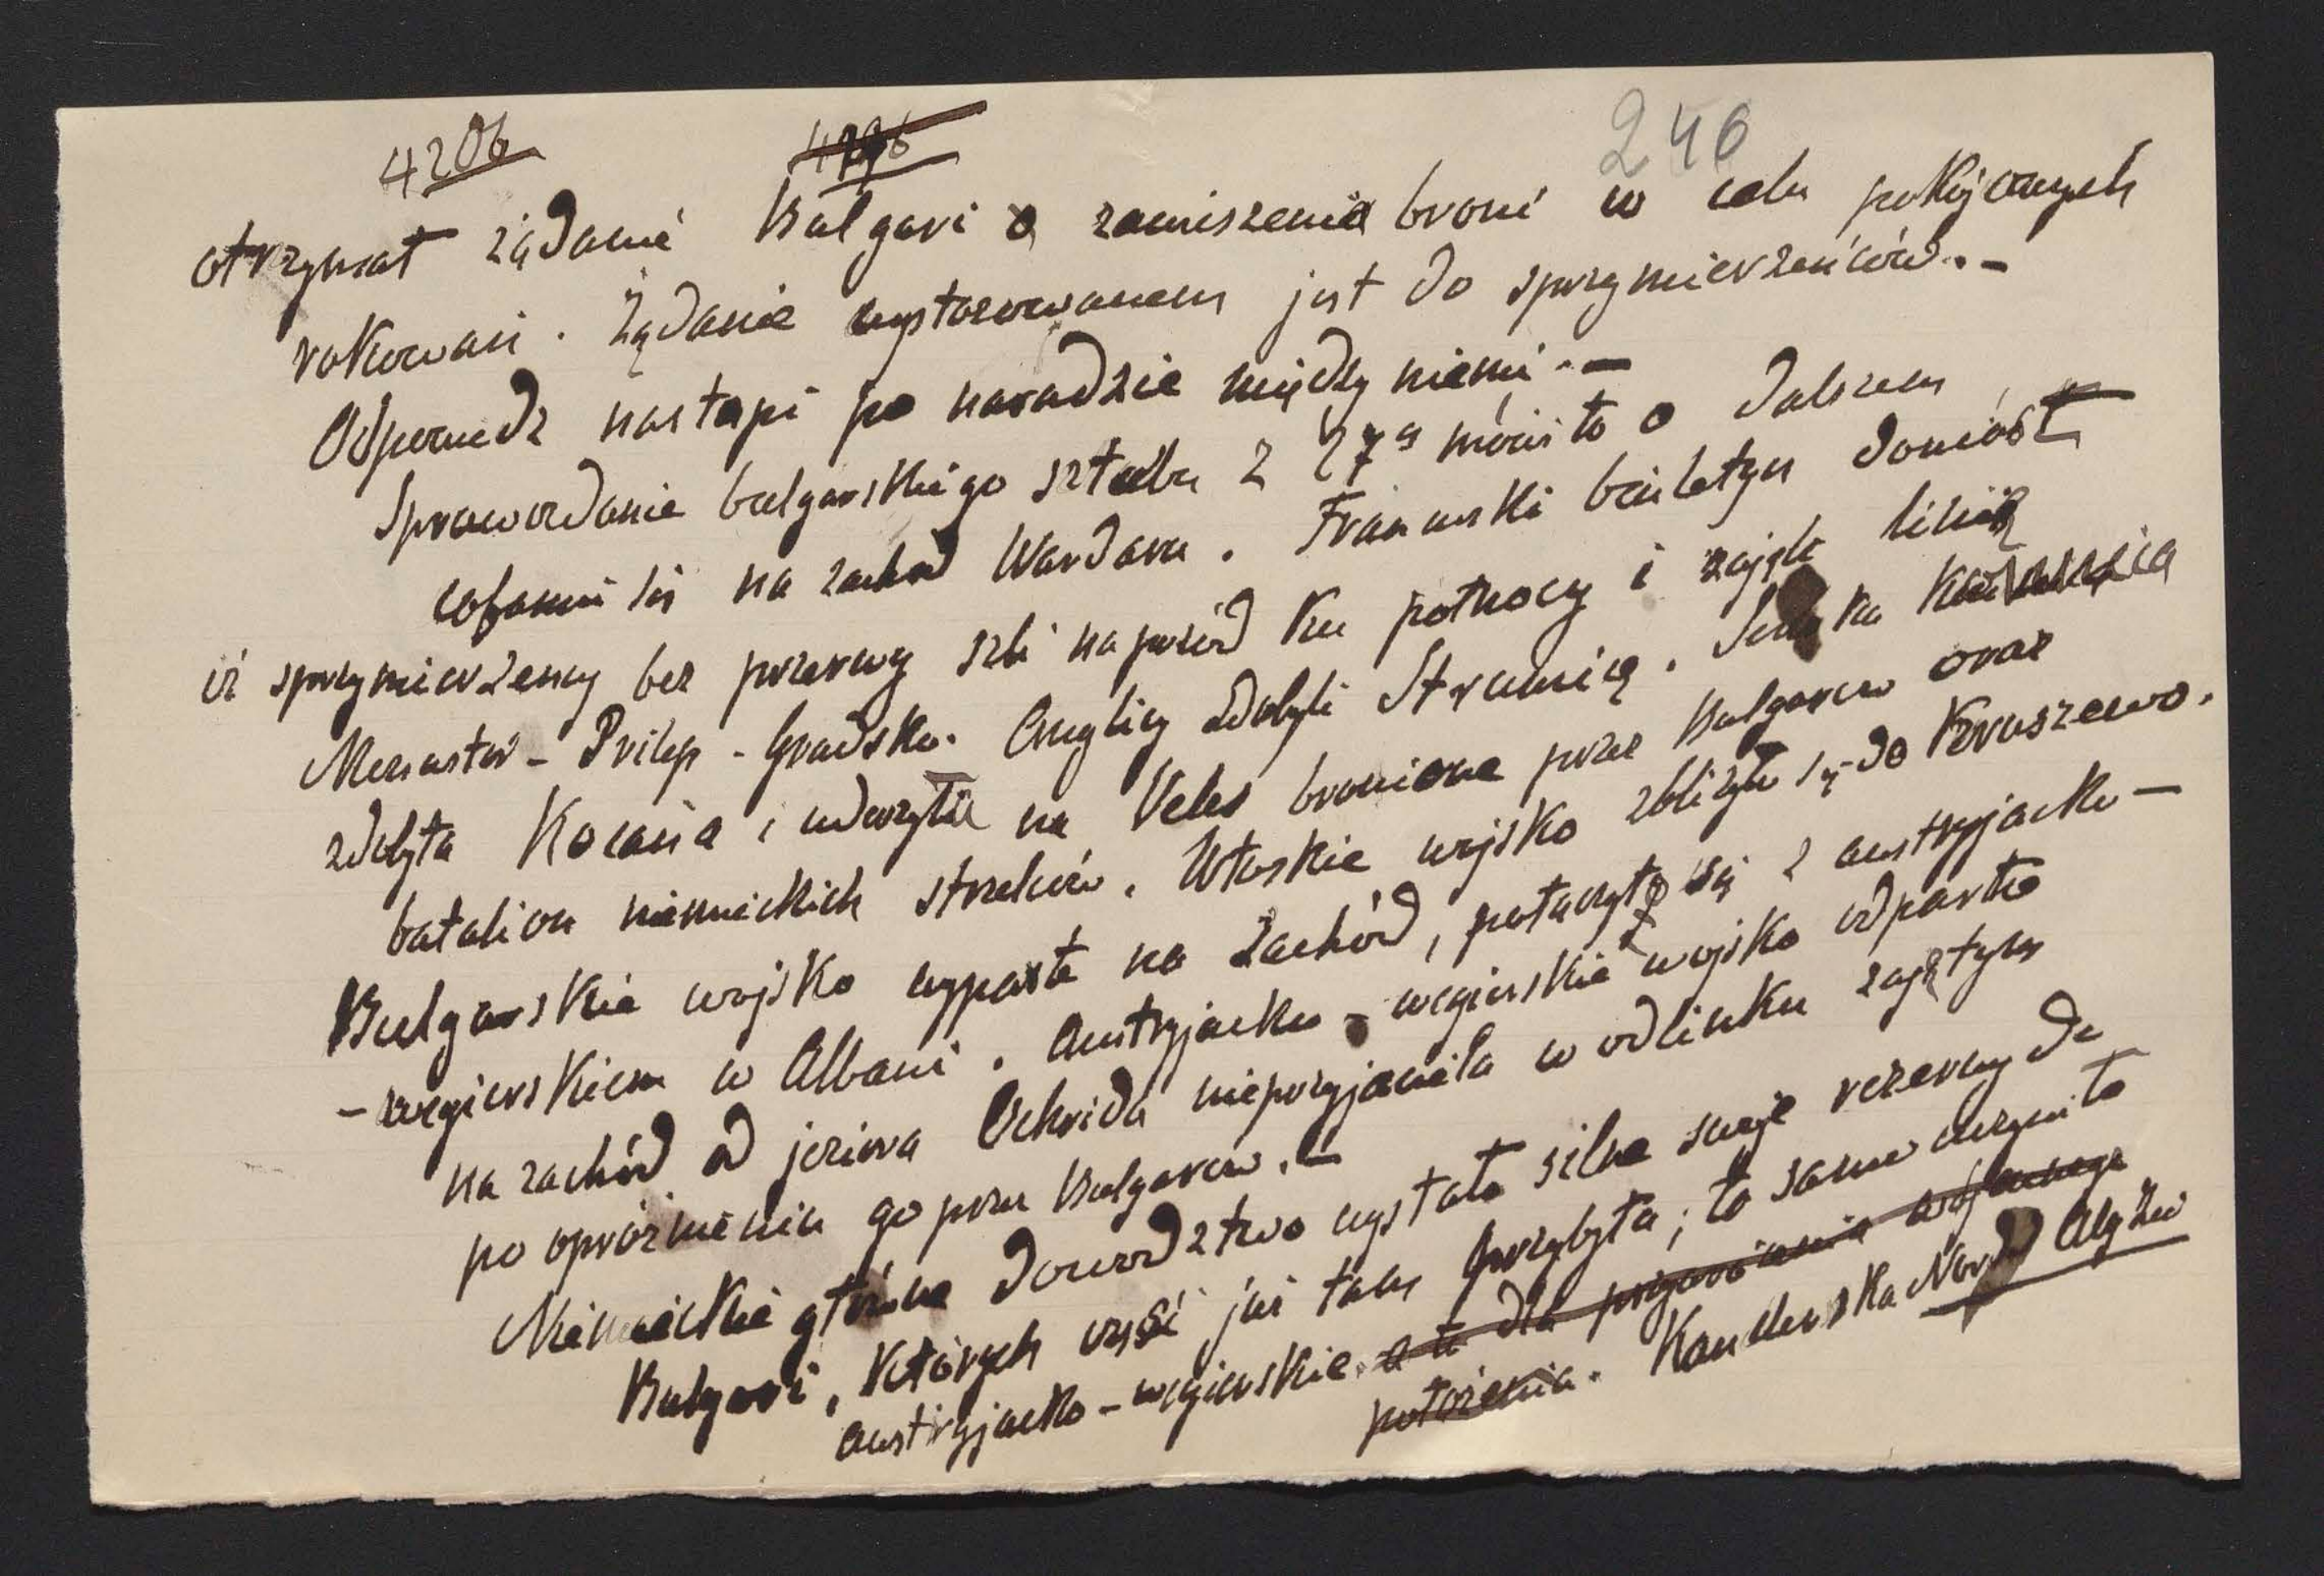 4206 4196 246
otrzymał żądanie Bulgari o zawiszenie broni w celu pokojowych
rokowań. Żądanie wystosowanem jest do sprzymierzeńców.-
Odpowiedz nastąpi po naradzie między niemi.-
Sprawozdanie bulgarskiego sztabu z 27go mówiło o dalszem
cofaniu się na zachód Wardaru. Francuski biuletyn doniósł
iż sprzymierzeńcy bez przerwy szli naprzód ku północy i zajęli linię
Monastir - Prilep - Gradsko. Anglicy zdobyli Strumicę. Serbska
zdobyła Kocania i uderzyła na Veles bronione przez Bulgarów oraz
batalion niemieckich strzelców. Włoskie wojsko zbliżyło się do Kruszewo.
Bulgarskie wojsko wyparte na zachód, połączyło się z austryjacko -
- węgierskiem w Albani. Austryjacko - węgierskie wojsko odparło
na zachód od jeziora Ochrida nieprzyjaciela w odcinku zajętym
po opróżnieniu go przez Bulgarów.-
Niemieckie główne dowodztwo wysłało silne swoje rezerwy do
Bulgari, których część już tam przybyła; to samo uczyniło
austryjacko - węgierskie. a to dla położenia
położenia. Kanclerska Nord Alg Ztg